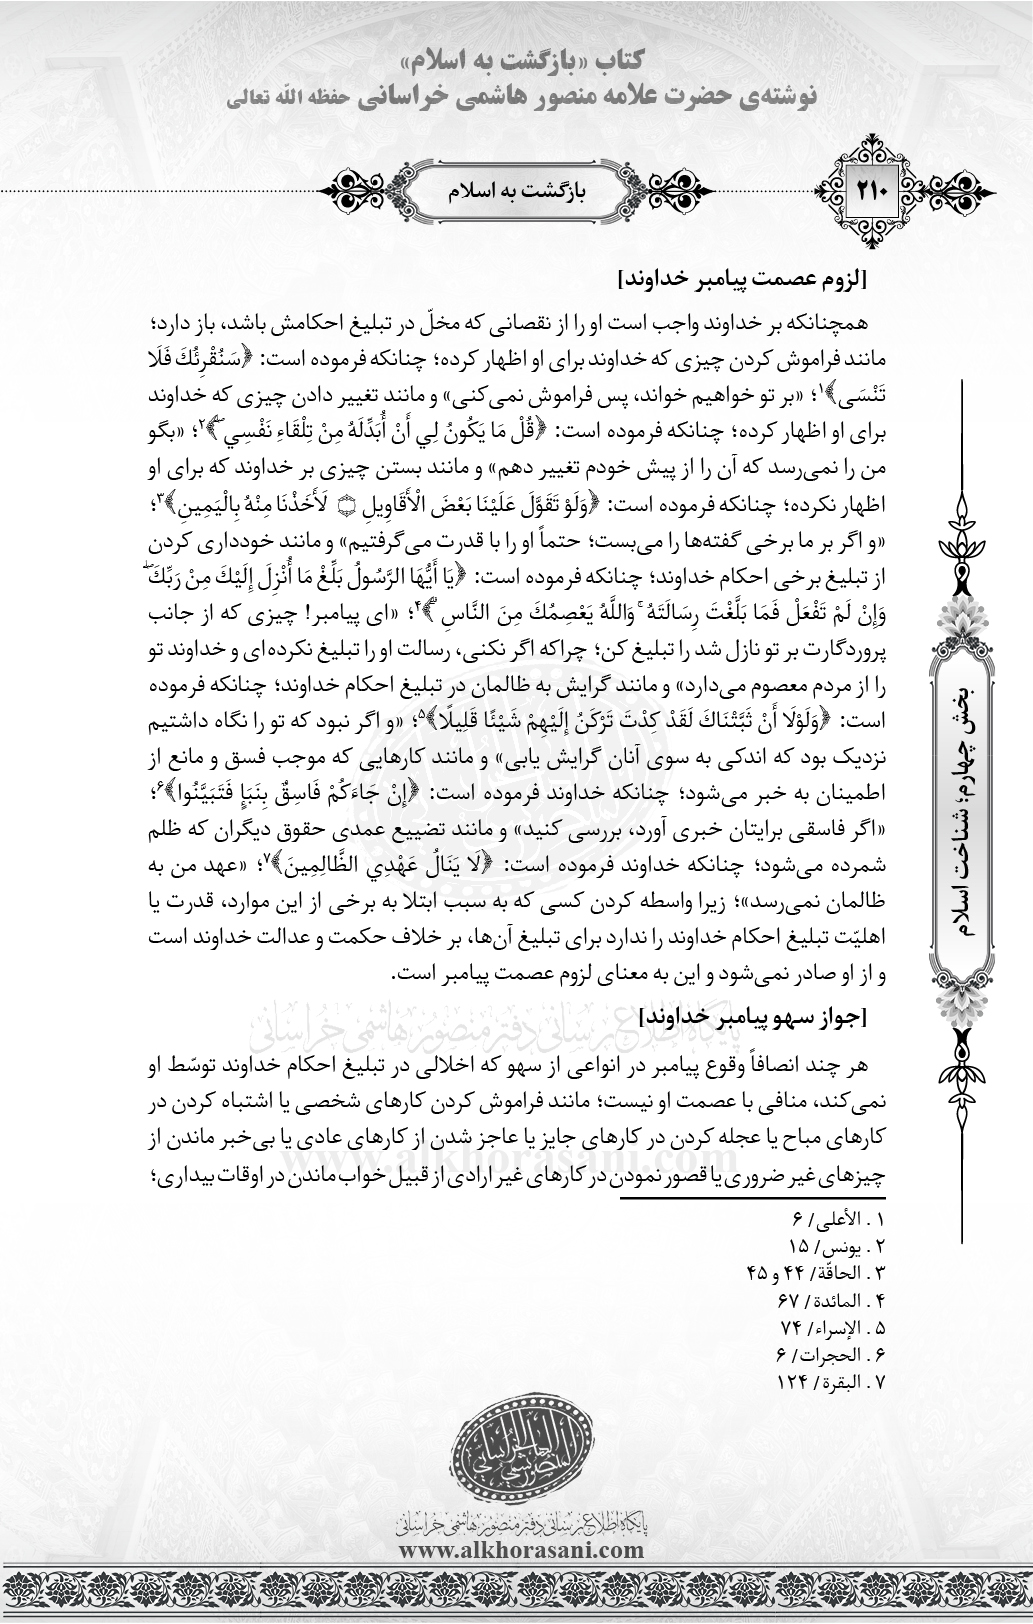 کتاب «بازگشت به اسلام»
نوشته‌ی حضرت علامه منصور هاشمی خراسانی حفظه الله تعالی
۲۱۰
بازگشت به اسلام
[لزوم عصمت پیامبر خداوند]
همچنانکه بر خداوند واجب است او را از نقصانی که مخلّ در تبلیغ احکامش باشد، باز دارد؛
مانند فراموش کردن چیزی که خداوند برای او اظهار کرده؛ چنانکه فرموده است: ﴿سَنُقْرِئُكَ فَلَا
تَنْسَى﴾۱؛ «بر تو خواهیم خواند، پس فراموش نمی‌کنی» و مانند تغییر دادن چیزی که خداوند
برای او اظهار کرده؛ چنانکه فرموده است: ﴿قُلْ مَا يَكُونُ لِي أَنْ أُبَدِّلَهُ مِنْ تِلْقَاءِ نَفْسِي ۖ﴾۲؛ «بگو
من را نمی‌رسد که آن را از پیش خودم تغییر دهم» و مانند بستن چیزی بر خداوند که برای او
اظهار نکرده؛ چنانکه فرموده است: ﴿وَلَوْ تَقَوَّلَ عَلَيْنَا بَعْضَ الْأَقَاوِيلِ ۝ لَأَخَذْنَا مِنْهُ بِالْيَمِينِ﴾۳؛
«و اگر بر ما برخی گفته‌ها را می‌بست؛ حتماً او را با قدرت می‌گرفتیم» و مانند خودداری کردن
از تبلیغ برخی احکام خداوند؛ چنانکه فرموده است: ﴿يَا أَيُّهَا الرَّسُولُ بَلِّغْ مَا أُنْزِلَ إِلَيْكَ مِنْ رَبِّكَ ۖ
وَإِنْ لَمْ تَفْعَلْ فَمَا بَلَّغْتَ رِسَالَتَهُ ۚ وَاللَّهُ يَعْصِمُكَ مِنَ النَّاسِ ۗ﴾۴؛ «ای پیامبر! چیزی که از جانب
پروردگارت بر تو نازل شد را تبلیغ کن؛ چراکه اگر نکنی، رسالت او را تبلیغ نکرده‌ای و خداوند تو
را از مردم معصوم می‌دارد» و مانند گرایش به ظالمان در تبلیغ احکام خداوند؛ چنانکه فرموده
است: ﴿وَلَوْلَا أَنْ ثَبَّتْنَاكَ لَقَدْ كِدْتَ تَرْكَنُ إِلَيْهِمْ شَيْئًا قَلِيلًا﴾۵؛ «و اگر نبود که تو را نگاه داشتیم
نزدیک بود که اندکی به سوی آنان گرایش یابی» و مانند کارهایی که موجب فسق و مانع از
اطمینان به خبر می‌شود؛ چنانکه خداوند فرموده است: ﴿إِنْ جَاءَكُمْ فَاسِقٌ بِنَبَإٍ فَتَبَيَّنُوا﴾۶؛
«اگر فاسقی برایتان خبری آورد، بررسی کنید» و مانند تضییع عمدی حقوق دیگران که ظلم
شمرده می‌شود؛ چنانکه خداوند فرموده است: ﴿لَا يَنَالُ عَهْدِي الظَّالِمِينَ﴾۷؛ «عهد من به
ظالمان نمی‌رسد»؛ زیرا واسطه کردن کسی که به سبب ابتلا به برخی از این موارد، قدرت یا
اهلیّت تبلیغ احکام خداوند را ندارد برای تبلیغ آن‌ها، بر خلاف حکمت و عدالت خداوند است
و از او صادر نمی‌شود و این به معنای لزوم عصمت پیامبر است.
[جواز سهو پیامبر خداوند]
هر چند انصافاً وقوع پیامبر در انواعی از سهو که اخلالی در تبلیغ احکام خداوند توسّط او
نمی‌کند، منافی با عصمت او نیست؛ مانند فراموش کردن کارهای شخصی یا اشتباه کردن در
کارهای مباح یا عجله کردن در کارهای جایز یا عاجز شدن از کارهای عادی یا بی‌خبر ماندن از
چیزهای غیر ضروری یا قصور نمودن در کارهای غیر ارادی از قبیل خواب ماندن در اوقات بیداری؛
۱ . الأعلی/ ۶
۲ . یونس/ ۱۵
۳ . الحاقّة/ ۴۴ و ۴۵
۴ . المائدة/ ۶۷
۵ . الإسراء/ ۷۴
۶ . الحجرات/ ۶
۷ . البقرة/ ۱۲۴
بخش چهارم؛ شناخت اسلام
پایگاه اطلاع‌رسانی دفتر منصور هاشمی خراسانی
www.alkhorasani.com
پایگاه اطلاع‌رسانی دفتر منصور هاشمی خراسانی
www.alkhorasani.com